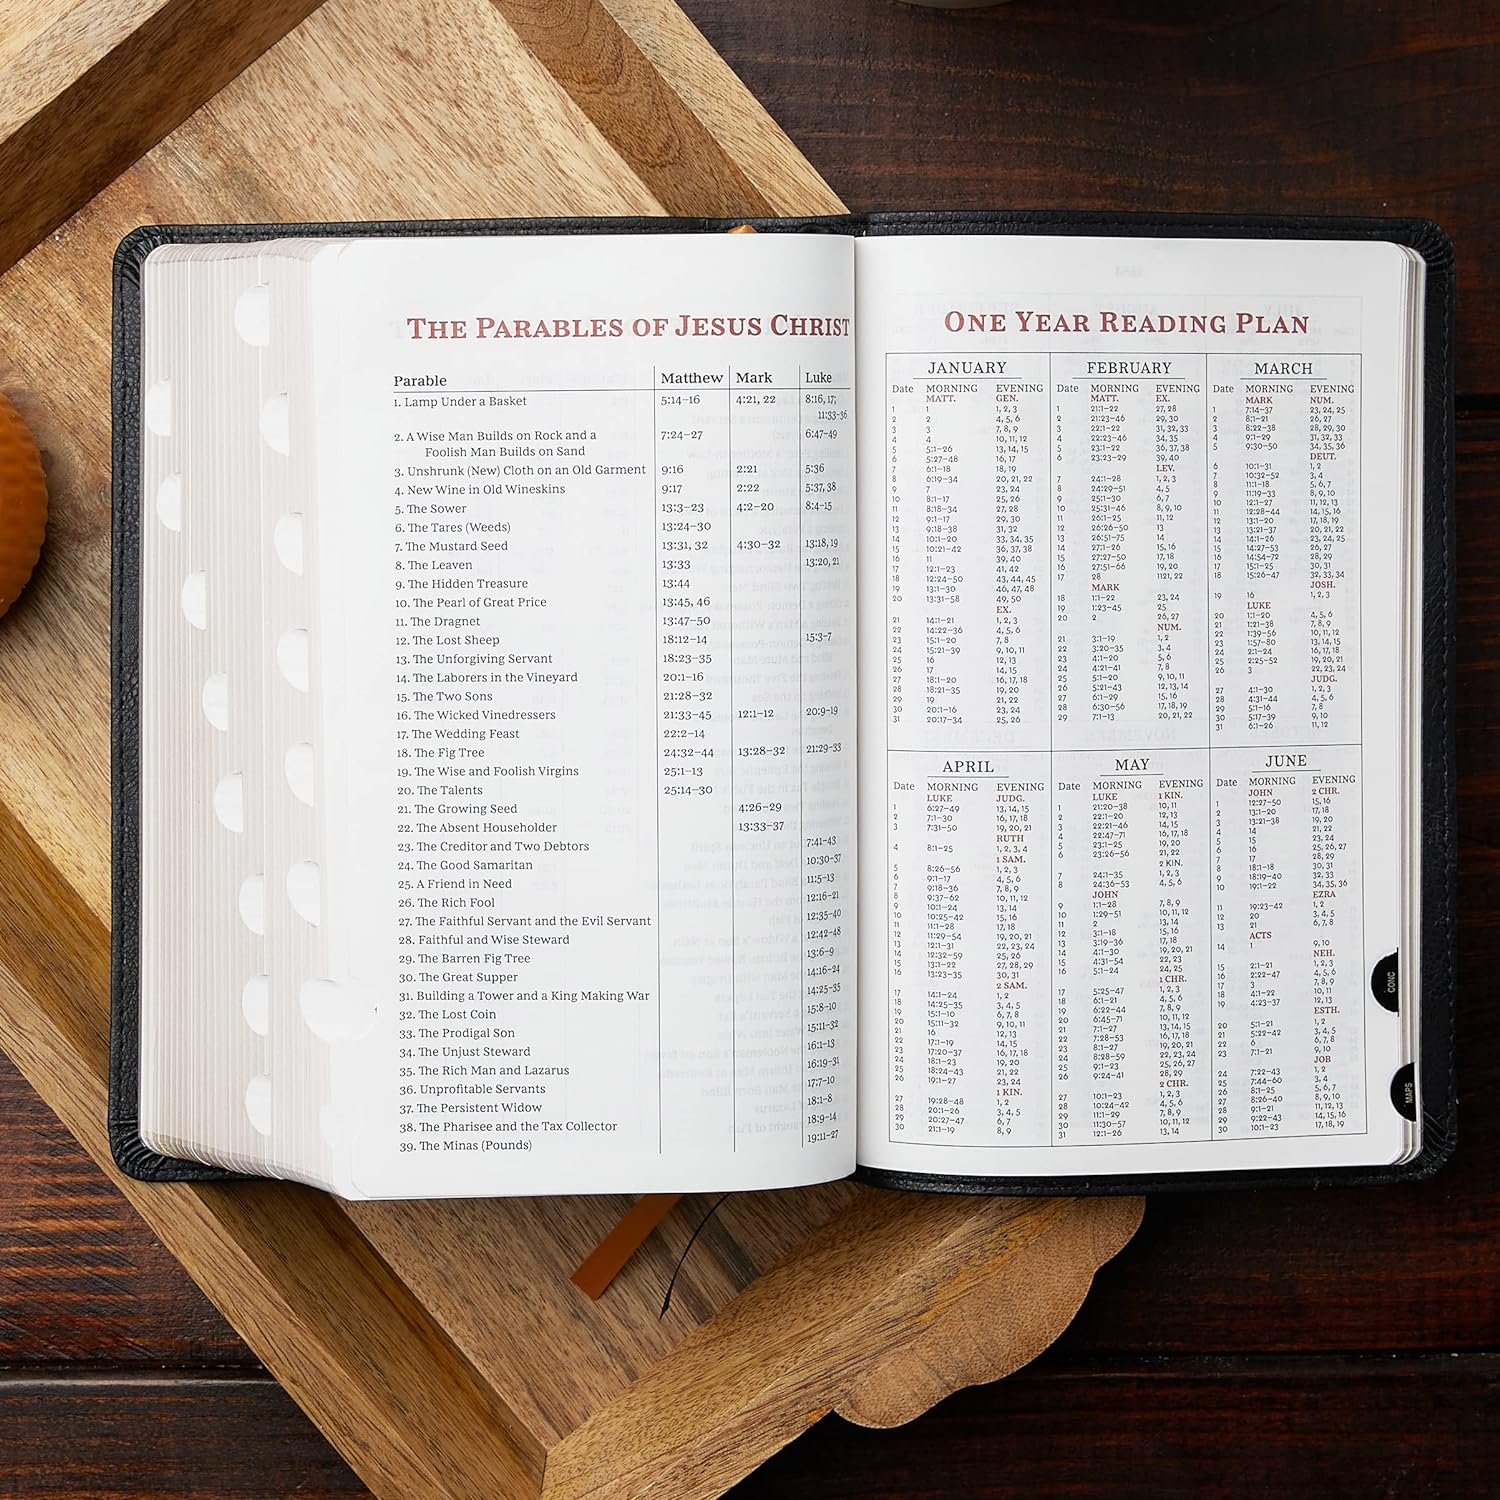 THE PARABLES OF JESUS CHRIST
Parable Matthew Mark Luke
1. Lamp Under a Basket 5:14–16 4:21, 22 8:16, 17;
11:33–36
2. A Wise Man Builds on Rock and a 7:24–27 6:47–49
Foolish Man Builds on Sand
3. Unshrunk (New) Cloth on an Old Garment 9:16 2:21 5:36
4. New Wine in Old Wineskins 9:17 2:22 5:37, 38
5. The Sower 13:3–23 4:2–20 8:4–15
6. The Tares (Weeds) 13:24–30
7. The Mustard Seed 13:31, 32 4:30–32 13:18, 19
8. The Leaven 13:33 13:20, 21
9. The Hidden Treasure 13:44
10. The Pearl of Great Price 13:45, 46
11. The Dragnet 13:47–50
12. The Lost Sheep 18:12–14 15:3–7
13. The Unforgiving Servant 18:23–35
14. The Laborers in the Vineyard 20:1–16
15. The Two Sons 21:28–32
16. The Wicked Vinedressers 21:33–45 12:1–12 20:9–19
17. The Wedding Feast 22:2–14
18. The Fig Tree 24:32–44 13:28–32 21:29–33
19. The Wise and Foolish Virgins 25:1–13
20. The Talents 25:14–30
21. The Growing Seed 4:26–29
22. The Absent Householder 13:33–37
23. The Creditor and Two Debtors 7:41–43
24. The Good Samaritan 10:30–37
25. A Friend in Need 11:5–13
26. The Rich Fool 12:16–21
27. The Faithful Servant and the Evil Servant 12:35–40
28. Faithful and Wise Steward 12:42–48
29. The Barren Fig Tree 13:6–9
30. The Great Supper 14:16–24
31. Building a Tower and a King Making War 14:25–35
32. The Lost Coin 15:8–10
33. The Prodigal Son 15:11–32
34. The Unjust Steward 16:1–13
35. The Rich Man and Lazarus 16:19–31
36. Unprofitable Servants 17:7–10
37. The Persistent Widow 18:1–8
38. The Pharisee and the Tax Collector 18:9–14
39. The Minas (Pounds) 19:11–27
ONE YEAR READING PLAN
JANUARY
Date MORNING EVENING
MATT. GEN.
1 1 1, 2, 3
2 2 4, 5, 6
3 3 7, 8, 9
4 4 10, 11, 12
5 5:1–26 13, 14, 15
6 5:27–48 16, 17
7 6:1–18 18, 19
8 6:19–34 20, 21, 22
9 7 23, 24
10 8:1–17 25, 26
11 8:18–34 27, 28
12 9:1–17 29, 30
13 9:18–38 31, 32
14 10:1–20 33, 34, 35
15 10:21–42 36, 37, 38
16 11 39, 40
17 12:1–23 41, 42
18 12:24–50 43, 44, 45
19 13:1–30 46, 47, 48
20 13:31–58 49, 50
EX.
21 14:1–21 1, 2, 3
22 14:22–36 4, 5, 6
23 15:1–20 7, 8
24 15:21–39 9, 10, 11
25 16 12, 13
26 17 14, 15
27 18:1–20 16, 17, 18
28 18:21–35 19, 20
29 19 21, 22
30 20:1–16 23, 24
31 20:17–34 25, 26
FEBRUARY
Date MORNING EVENING
MATT. EX.
1 21:1–22 27, 28
2 21:23–46 29, 30
3 22:1–22 31, 32, 33
4 22:23–46 34, 35
5 23:1–22 36, 37, 38
6 23:23–29 39, 40
LEV.
7 24:1–28 1, 2, 3
8 24:29–51 4, 5
9 25:1–30 6, 7
10 25:31–46 8, 9, 10
11 26:1–25 11, 12
12 26:26–50 13
13 26:51–75 14
14 27:1–26 15, 16
15 27:27–50 17, 18
16 27:51–66 19, 20
17 28 1121, 22
MARK
18 1:1–22 23, 24
19 1:23–45 25
20 2 26, 27
NUM.
21 3:1–19 1, 2
22 3:20–35 3, 4
23 4:1–20 5, 6
24 4:21–41 7, 8
25 5:1–20 9, 10, 11
26 5:21–43 12, 13, 14
27 6:1–29 15, 16
28 6:30–56 17, 18, 19
29 7:1–13 20, 21, 22
MARCH
Date MORNING EVENING
MARK NUM.
1 7:14–37 23, 24, 25
2 8:1–21 26, 27
3 8:22–38 28, 29, 30
4 9:1–29 31, 32, 33
5 9:30–50 34, 35, 36
DEUT.
6 10:1–31 1, 2
7 10:32–52 3, 4
8 11:1–18 5, 6, 7
9 11:19–33 8, 9, 10
10 12:1–27 11, 12, 13
11 12:28–44 14, 15, 16
12 13:1–20 17, 18, 19
13 13:21–37 20, 21, 22
14 14:1–26 23, 24, 25
15 14:27–53 26, 27
16 14:54–72 28, 29
17 15:1–25 30, 31
18 15:26–47 32, 33, 34
JOSH.
19 16 1, 2, 3
LUKE
20 1:1–20 4, 5, 6
21 1:21–38 7, 8, 9
22 1:39–56 10, 11, 12
23 1:57–80 13, 14, 15
24 2:1–24 16, 17, 18
25 2:25–52 19, 20, 21
26 3 22, 23, 24
JUDG.
27 4:1–30 1, 2, 3
28 4:31–44 4, 5, 6
29 5:1–16 7, 8
30 5:17–39 9, 10
31 6:1–26 11, 12
APRIL
Date MORNING EVENING
LUKE JUDG.
1 6:27–49 13, 14, 15
2 7:1–30 16, 17, 18
3 7:31–50 19, 20, 21
RUTH
4 8:1–25 1, 2, 3, 4
1 SAM.
5 8:26–56 1, 2, 3
6 9:1–17 4, 5, 6
7 9:18–36 7, 8, 9
8 9:37–62 10, 11, 12
9 10:1–24 13, 14
10 10:25–42 15, 16
11 11:1–28 17, 18
12 11:29–54 19, 20, 21
13 12:1–31 22, 23, 24
14 12:32–59 25, 26
15 13:1–22 27, 28, 29
16 13:23–35 30, 31
2 SAM.
17 14:1–24 1, 2
18 14:25–35 3, 4, 5
19 15:1–10 6, 7, 8
20 15:11–32 9, 10, 11
21 16 12, 13
22 17:1–19 14, 15
23 17:20–37 16, 17, 18
24 18:1–23 19, 20
25 18:24–43 21, 22
26 19:1–27 23, 24
1 KIN.
27 19:28–48 1, 2
28 20:1–26 3, 4, 5
29 20:27–47 6, 7
30 21:1–19 8, 9
MAY
Date MORNING EVENING
LUKE 1 KIN.
1 21:20–38 10, 11
2 22:1–20 12, 13
3 22:21–46 14, 15
4 22:47–71 16, 17, 18
5 23:1–25 19, 20
6 23:26–56 21, 22
2 KIN.
7 24:1–35 1, 2, 3
8 24:36–53 4, 5, 6
JOHN
9 1:1–28 7, 8, 9
10 1:29–51 10, 11, 12
11 2 13, 14
12 3:1–18 15, 16
13 3:19–36 17, 18
14 4:1–30 19, 20, 21
15 4:31–54 22, 23
16 5:1–24 24, 25
1 CHR.
17 5:25–47 1, 2, 3
18 6:1–21 4, 5, 6
19 6:22–44 7, 8, 9
20 6:45–71 10, 11, 12
21 7:1–27 13, 14, 15
22 7:28–53 16, 17, 18
23 8:1–27 19, 20, 21
24 8:28–59 22, 23, 24
25 9:1–23 25, 26, 27
26 9:24–41 28, 29
2 CHR.
27 10:1–23 1, 2, 3
28 10:24–42 4, 5, 6
29 11:1–29 7, 8, 9
30 11:30–57 10, 11, 12
31 12:1–26 13, 14
JUNE
Date MORNING EVENING
JOHN 2 CHR.
1 12:27–50 15, 16
2 13:1–20 17, 18
3 13:21–38 19, 20
4 14 21, 22
5 15 23, 24
6 16 25, 26, 27
7 17 28, 29
8 18:1–18 30, 31
9 18:19–40 32, 33
10 19:1–22 34, 35, 36
EZRA
11 19:23–42 1, 2
12 20 3, 4, 5
13 21 6, 7, 8
ACTS
14 1 9, 10
NEH.
15 2:1–21 1, 2, 3
16 2:22–47 4, 5, 6
17 3 7, 8, 9
18 4:1–22 10, 11
19 4:23–37 12, 13
ESTH.
20 5:1–21 1, 2
21 5:22–42 3, 4, 5
22 6 6, 7, 8
23 7:1–21 9, 10
JOB
24 7:22–43 1, 2
25 7:44–60 3, 4
26 8:1–25 5, 6, 7
27 8:26–40 8, 9, 10
28 9:1–21 11, 12, 13
29 9:22–43 14, 15, 16
30 10:1–23 17, 18, 19
CONC
MAPS